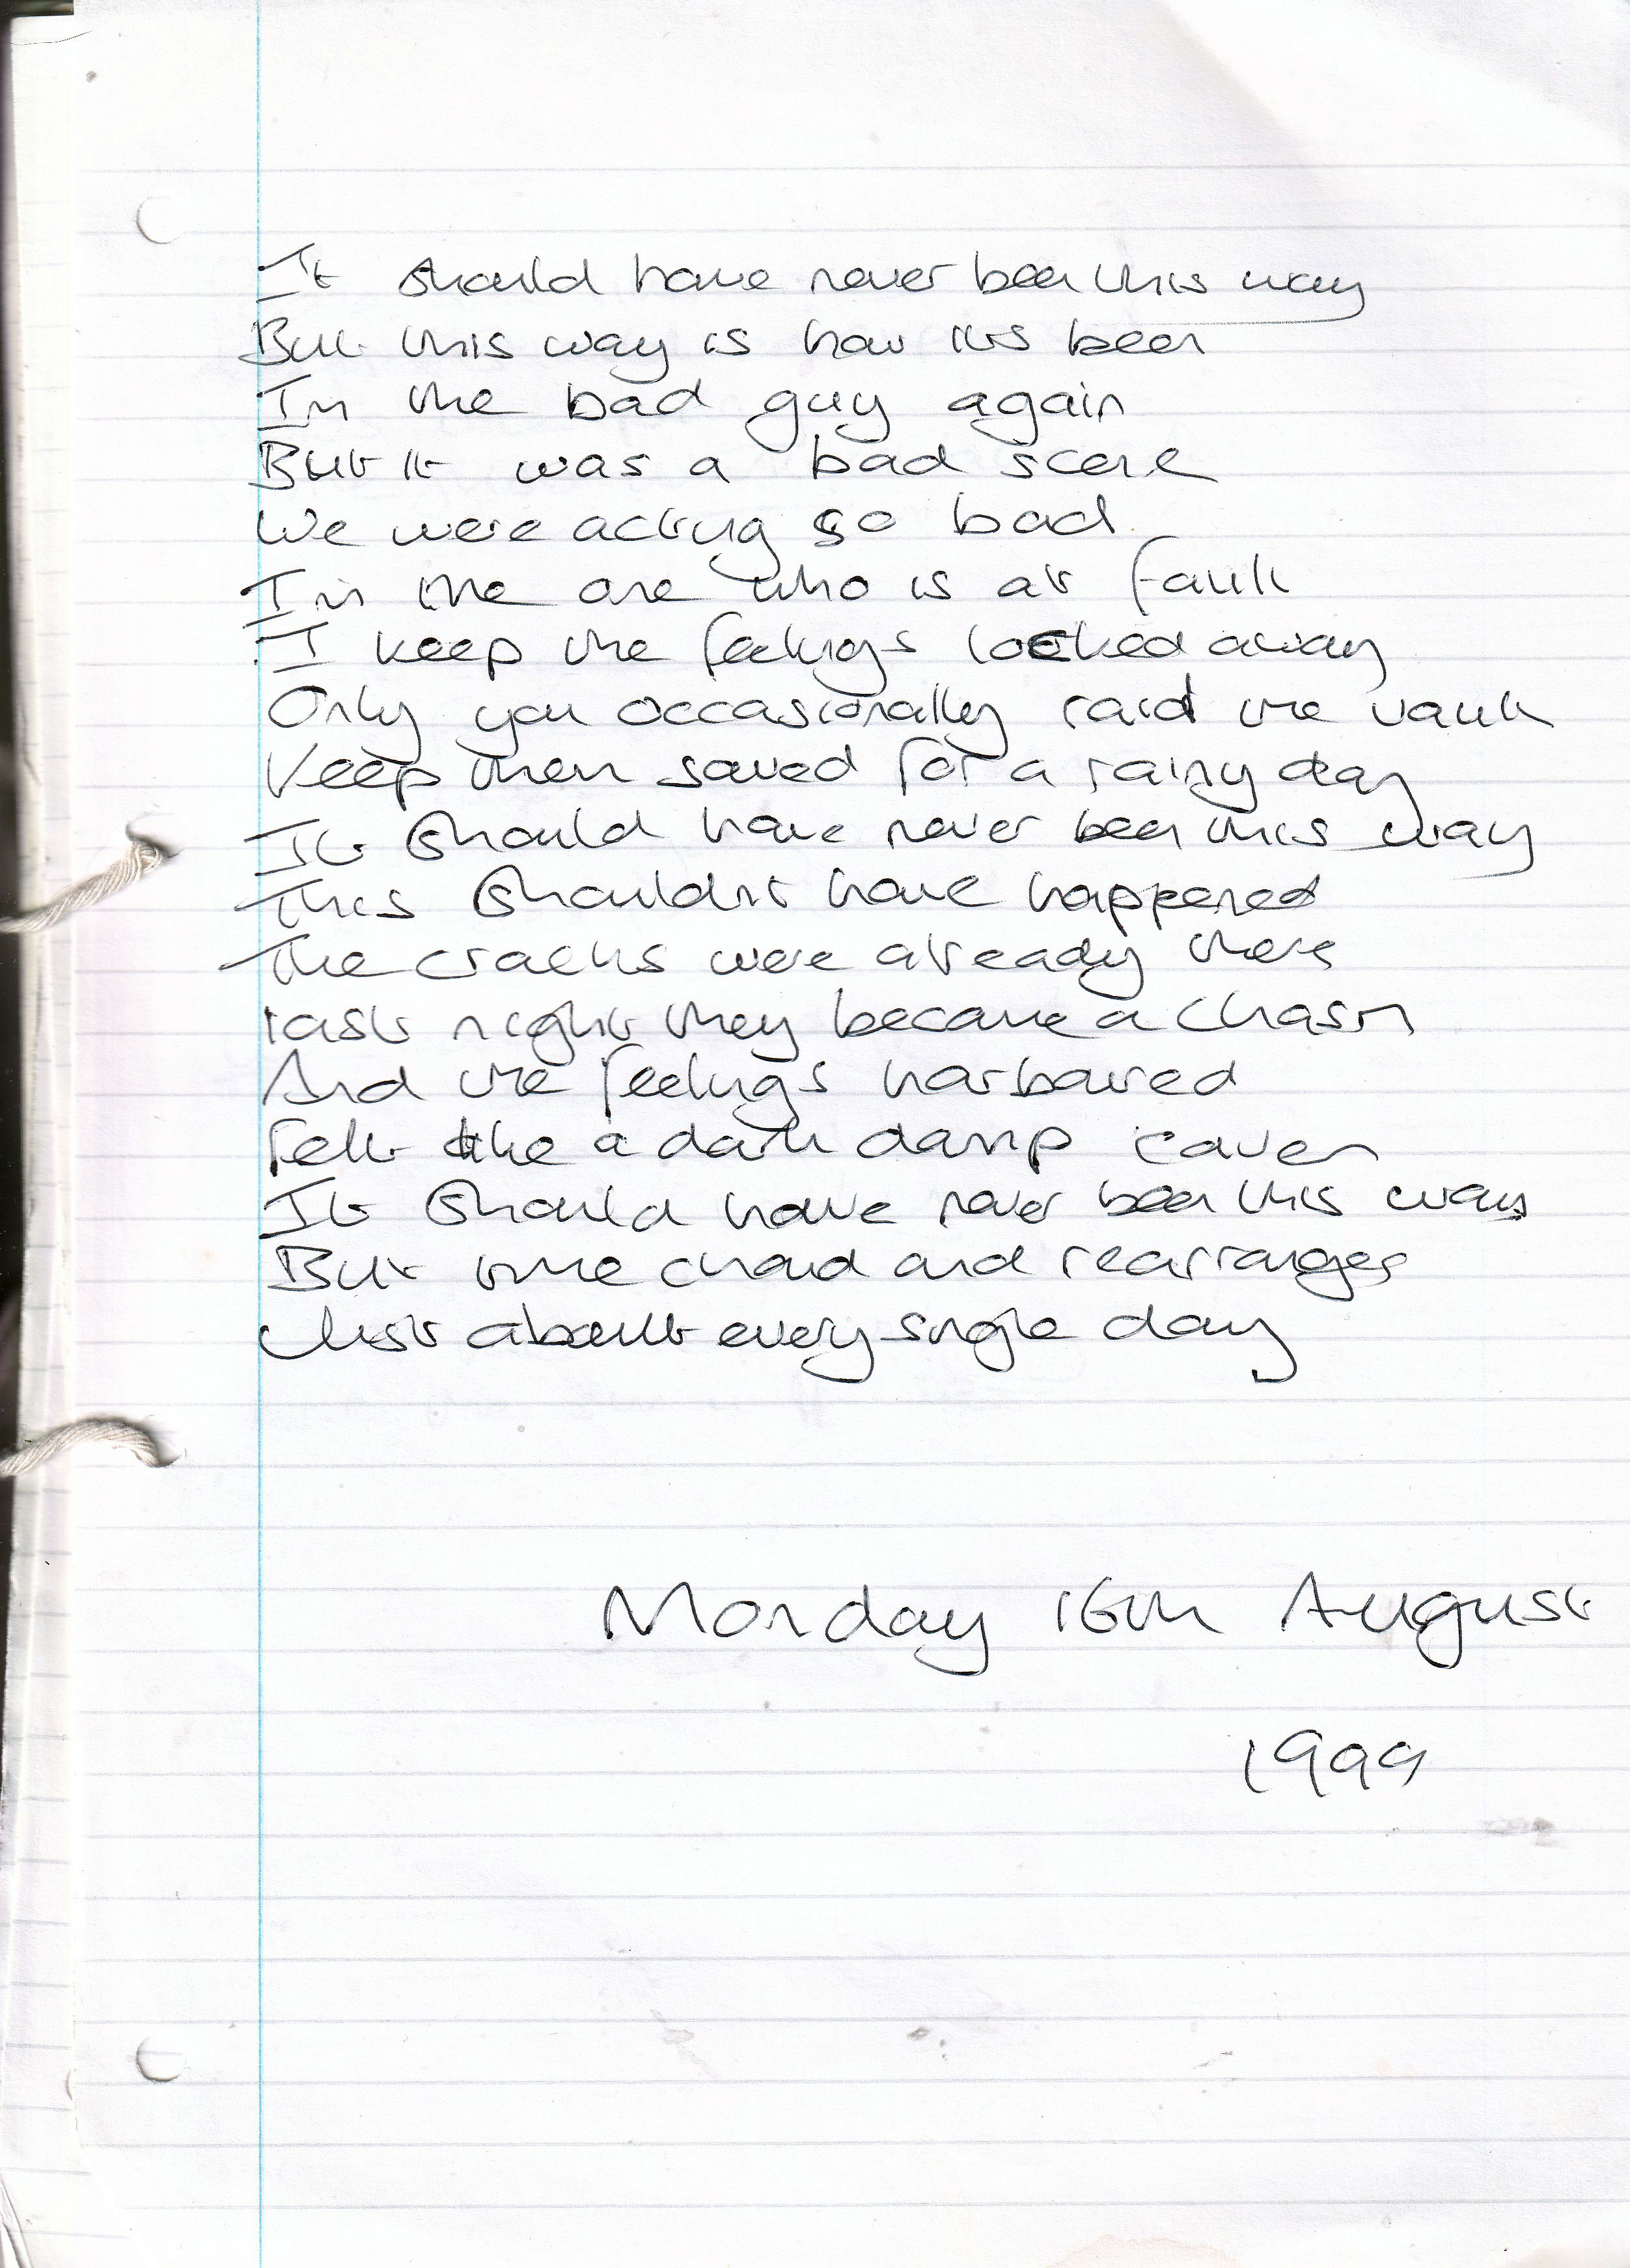 It should have never been this way
But this way is how its been
Im the bad guy again
But it was a bad scene
We were acting so bad
Im the one who is at fault
I keep the feelings locked away
Only you occasionally raid the vault
Keep them saved for a rainy day
It should have never been this way
This shouldnt have happened
The cracks were already there
last night they became a chasm
And the feelings harboured
Felt like a dark damp cavern
It should have never been this way
But time and rearranges
Just about every single day
Monday 16th August
1999